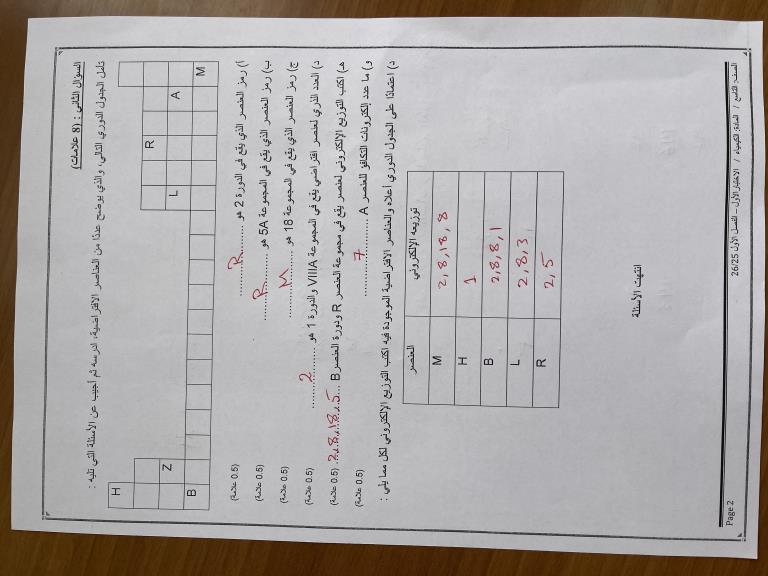 السؤال الثاني : (8 علامات)
تأمل الجدول الدوري التالي، والذي يوضح عددًا من العناصر الافتراضية، ادرسه ثم أجيب عن الأسئلة التي تليه :
H
R
Z L A
B M
أ) رمز العنصر الذي يقع في الدورة 2 هو ......R...... (0.5 علامة)
ب) رمز العنصر الذي يقع في المجموعة 5A هو ......R...... (0.5 علامة)
ج) رمز العنصر الذي يقع في المجموعة 18 هو ......M...... (0.5 علامة)
د) العدد الذري لعنصر افتراضي يقع في المجموعة VIIIA والدورة 1 هو ......2...... (0.5 علامة)
هـ) اكتب التوزيع الإلكتروني لعنصر يقع في مجموعة العنصر R ودورة العنصر B ...2,8,18,5... (0.5 علامة)
و) ما عدد إلكترونات التكافؤ للعنصر A ......7...... (0.5 علامة)
د) اعتمادًا على الجدول الدوري أعلاه والعناصر الافتراضية الموجودة فيه اكتب التوزيع الإلكتروني لكل مما يلي :
العنصر توزيعه الإلكتروني
M 2,8,18,8
H 1
B 2,8,8,1
L 2,8,3
R 2,5
انتهت الأسئلة
الصف: التاسع / المادة: الكيمياء / الاختبار الأول – الفصل الأول 26/25
Page 2